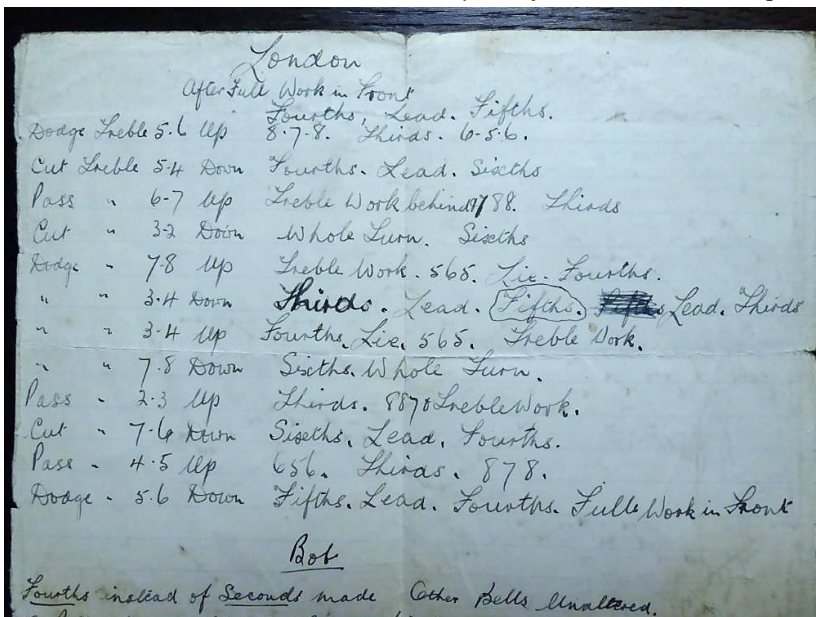 London
After Full Work in Front
Fourths, Lead. Fifths.
Dodge Treble 5.6 Up 8-7-8. Thirds. 6-5.6.
Cut Treble 5-4 Down Fourths. Lead. Sixths
Pass " 6-7 Up Treble Work behind 88. Thirds
Cut " 3-2 Down Whole Turn. Sixths
Dodge " 7-8 Up Treble Work. 565. Lie. Fourths.
" " 3.4 Down Thirds. Lead. Fifths. Lead. Thirds
" " 3-4 Up Fourths. Lie. 565. Treble Work.
" " 7.8 Down Sixths. Whole Turn.
Pass " 2-3 Up Thirds. Treble Work.
Cut " 7-6 Down Sixths. Lead. Fourths.
Pass " 4-5 Up 656. Thirds. 878.
Dodge " 5.6 Down Fifths. Lead. Fourths. Full Work in Front
Bob
Fourths instead of Seconds made Other Bells Unaltered.